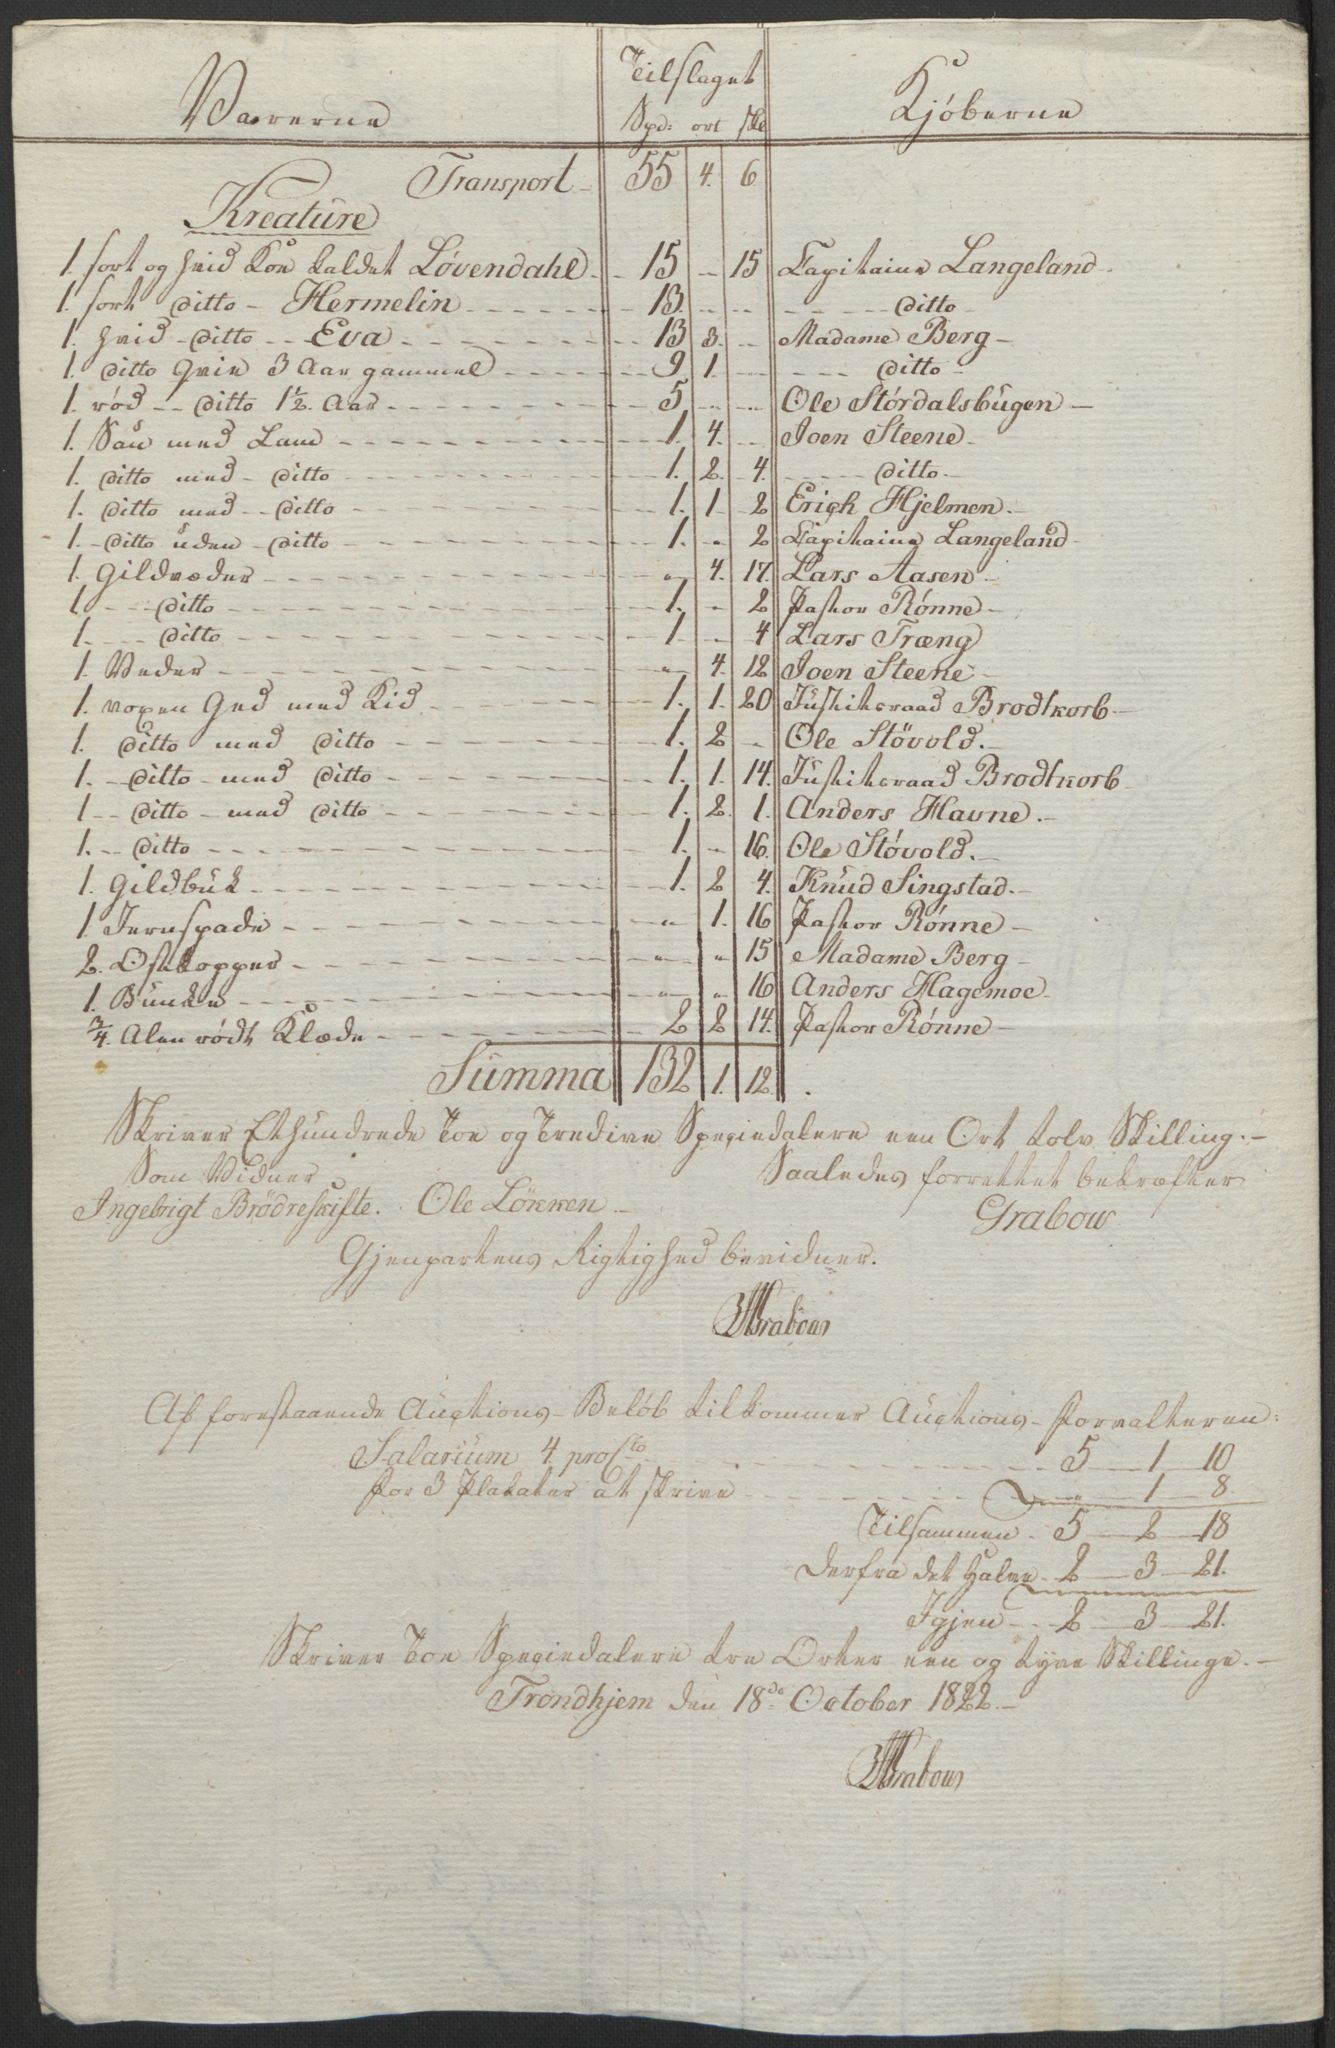 Varerne Tilslaget Kjöberne
Spd: ort sk
Transport 55 4. 6
Kreature
1. sort og hvid Koe kaldet Lövendahl 15 - 15 Capitaine Langeland
1. sort ditto - Hermelin 13. - - ditto
1. hvid - ditto - Eva 13 3. - Madame Berg
1. ditto Qvie 3 Aar gammel 9 1 - ditto
1. röd - ditto 1½ Aar 5 - - Ole Stördalsbugen
1. Sau med Lam 1. 4. - Joen Steene
1. ditto med - ditto 1. 2. 4. ditto
1. ditto med - ditto 1. 1 2 Erich Hjelmen.
1. - ditto uden - ditto 1. - 2 Capitaine Langeland
1. Gildvæder - 4. 17. Lars Aasen
1. - ditto 1. - 2 Pastor Rönne
1. - ditto 1 - 4 Lars Træng
1. Væder - 4. 12 Joen Steene
1. voxen Ged med Kid 1. 1. 20 Justitsraad Brodtkorb
1. ditto med ditto 1. 2 - Ole Stövold.
1. - ditto - med ditto 1. 1. 14. Justitsraad Brodtkorb
1 - ditto - med ditto 1. 2. 1. Anders Havne.
1. - ditto 1. - 16. Ole Stövold.
1. Gildbuk 1. 2 4. Knud Singstad.
1 Jernspade - 1. 16 Pastor Rönne
2. Ostkopper - - 15 Madame Berg
1. Bunke - - 16 Anders Hagemoe
¾ Alen rödt Klæde 2 2 14. Pastor Rönne
Summa 132 1. 12.
Skriver Et hundrede Toe og Tredive Speciedalere een Ort tolv Skilling.
Som Vidner Saaledes forrettet bekræfter
Ingebrigt Brödreskifte. Ole Lökken Grabow
Gjenpartens Rigtighed bevidner.
Grabow
Af forestaaende Auctions-Belöb tilkommer Auctions-Forvalteren:
Salarium 4 procto 5 1 10
For 3 Plakater at skrive - 1 8.
Tilsammen 5 2 18
Derfra det Halve 2 3 21.
Igjen 2 3 21.
Skriver Toe Speciedalere tre Orter een og tyve Skillinge.
Trondhjem den 18de October 1822.
Grabow